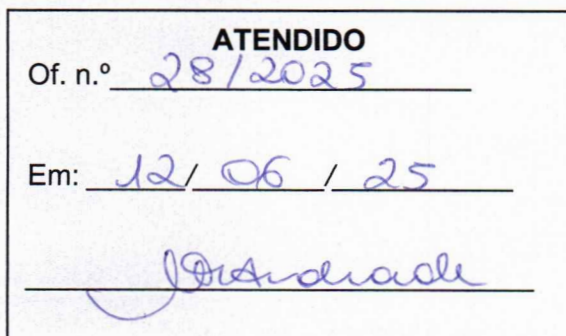 ATENDIDO
Of. n.º 28/2025
Em: 12/ 06 / 25